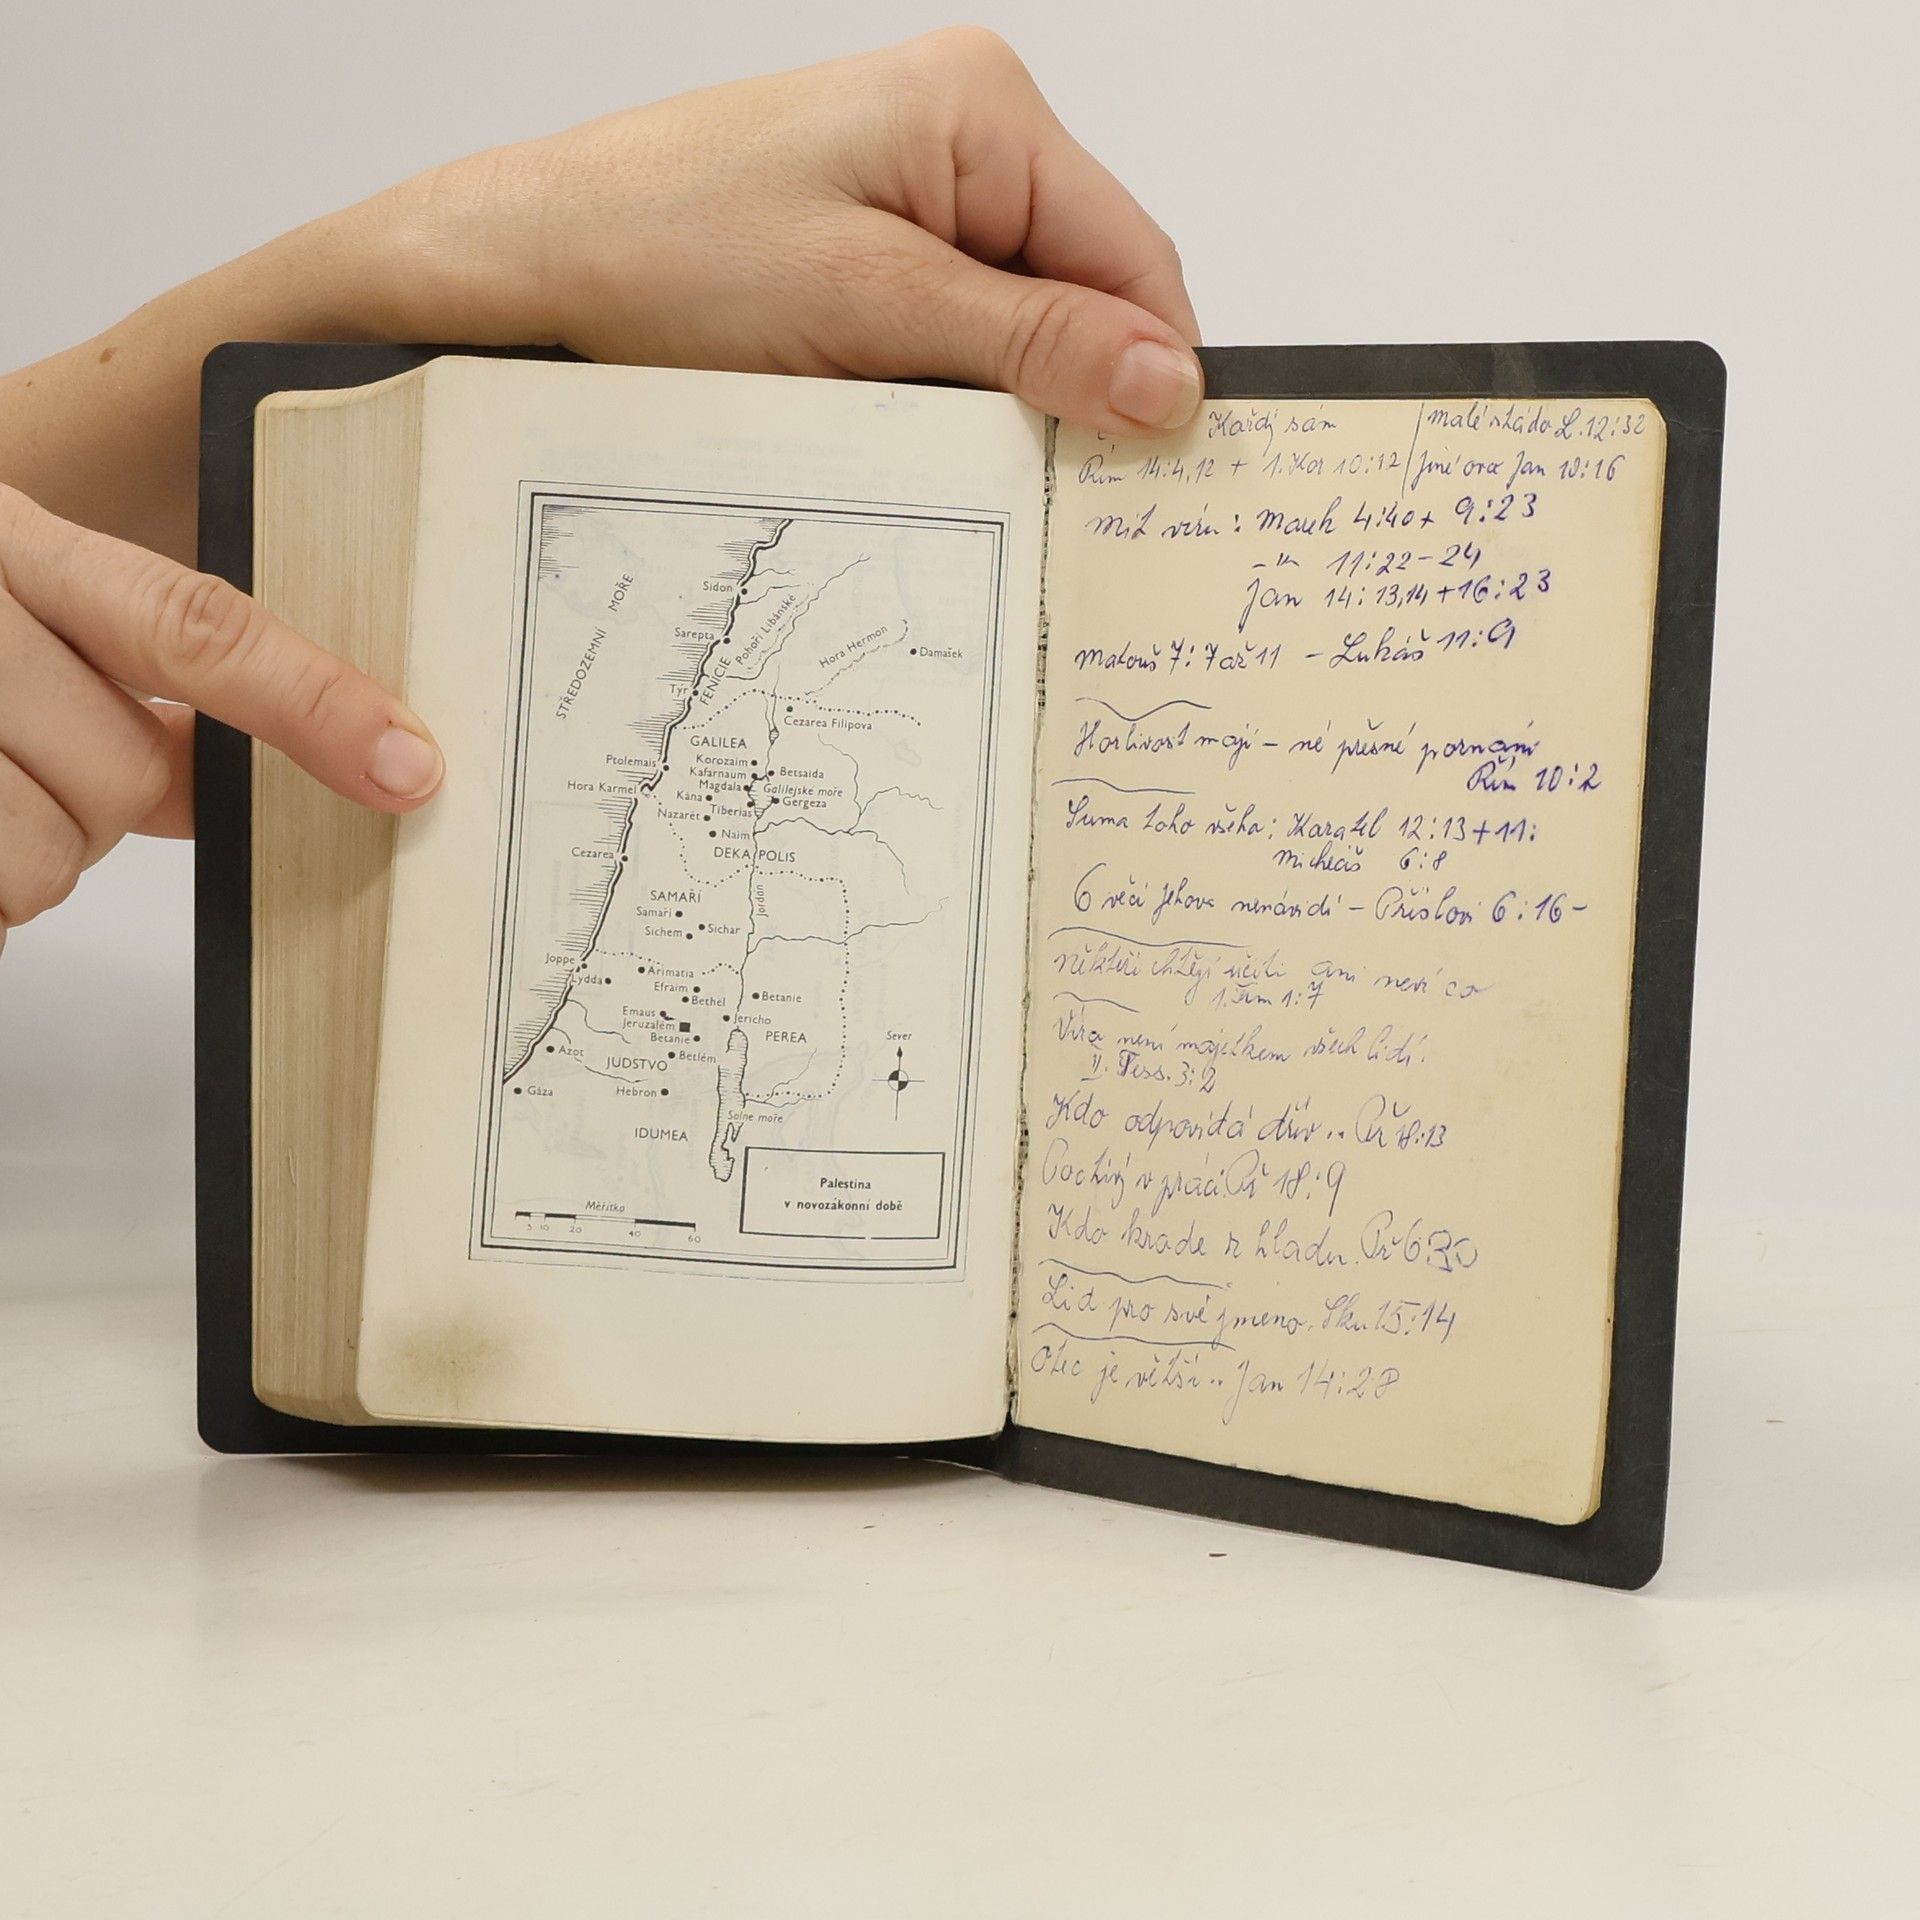 STŘEDOZEMNÍ MOŘE
Sidon
Sarepta
Pohoří Libánské
FENICIE
Hora Hermon
Damašek
Týr
Cezarea Filipova
GALILEA
Ptolemais
Korozaim
Kafarnaum
Betsaida
Hora Karmel
Magdala
Galilejské moře
Kána
Gergeza
Tiberias
Nazarét
Naim
Cezarea
DEKAPOLIS
SAMAŘÍ
Jordán
Samaří
Sichem
Sichar
Joppe
Arimatia
Lydda
Efraim
Bethel
Betanie
Emaus
Jeruzalém
Jericho
Betanie
PEREA
Sever
Azot
JUDSTVO
Betlém
Gáza
Hebron
Solné moře
IDUMEA
Palestina
v novozákonní době
Měřítko
5 10 20 40 60
Každý sám
malé stádo L. 12:32
Řím 14:4,12 + 1. Kor 10:12
jiné ovce Jan 10:16
mít víru: Marek 4:40 + 9:23
-"- 11:22-24
Jan 14:13,14 + 16:23
Matouš 7:7 až 11 - Lukáš 11:9
Horlivost mají - né přesné poznání
Řím 10:2
Suma toho všeho: Kazatel 12:13 + 11:
Micheáš 6:8
6 věcí Jehova nenávidí - Přísloví 6:16-
někteří chtějí učiti ani neví co
1. Tim 1:7
Víra není majetkem všech lidí.
II. Tess. 3:2
Kdo odpovídá dřív .. Př 18:13
Poctivý v práci. Př 18:9
Kdo krade z hladu. Př 6:30
Lid pro své jméno. Sku 15:14
Otec je větší .. Jan 14:28